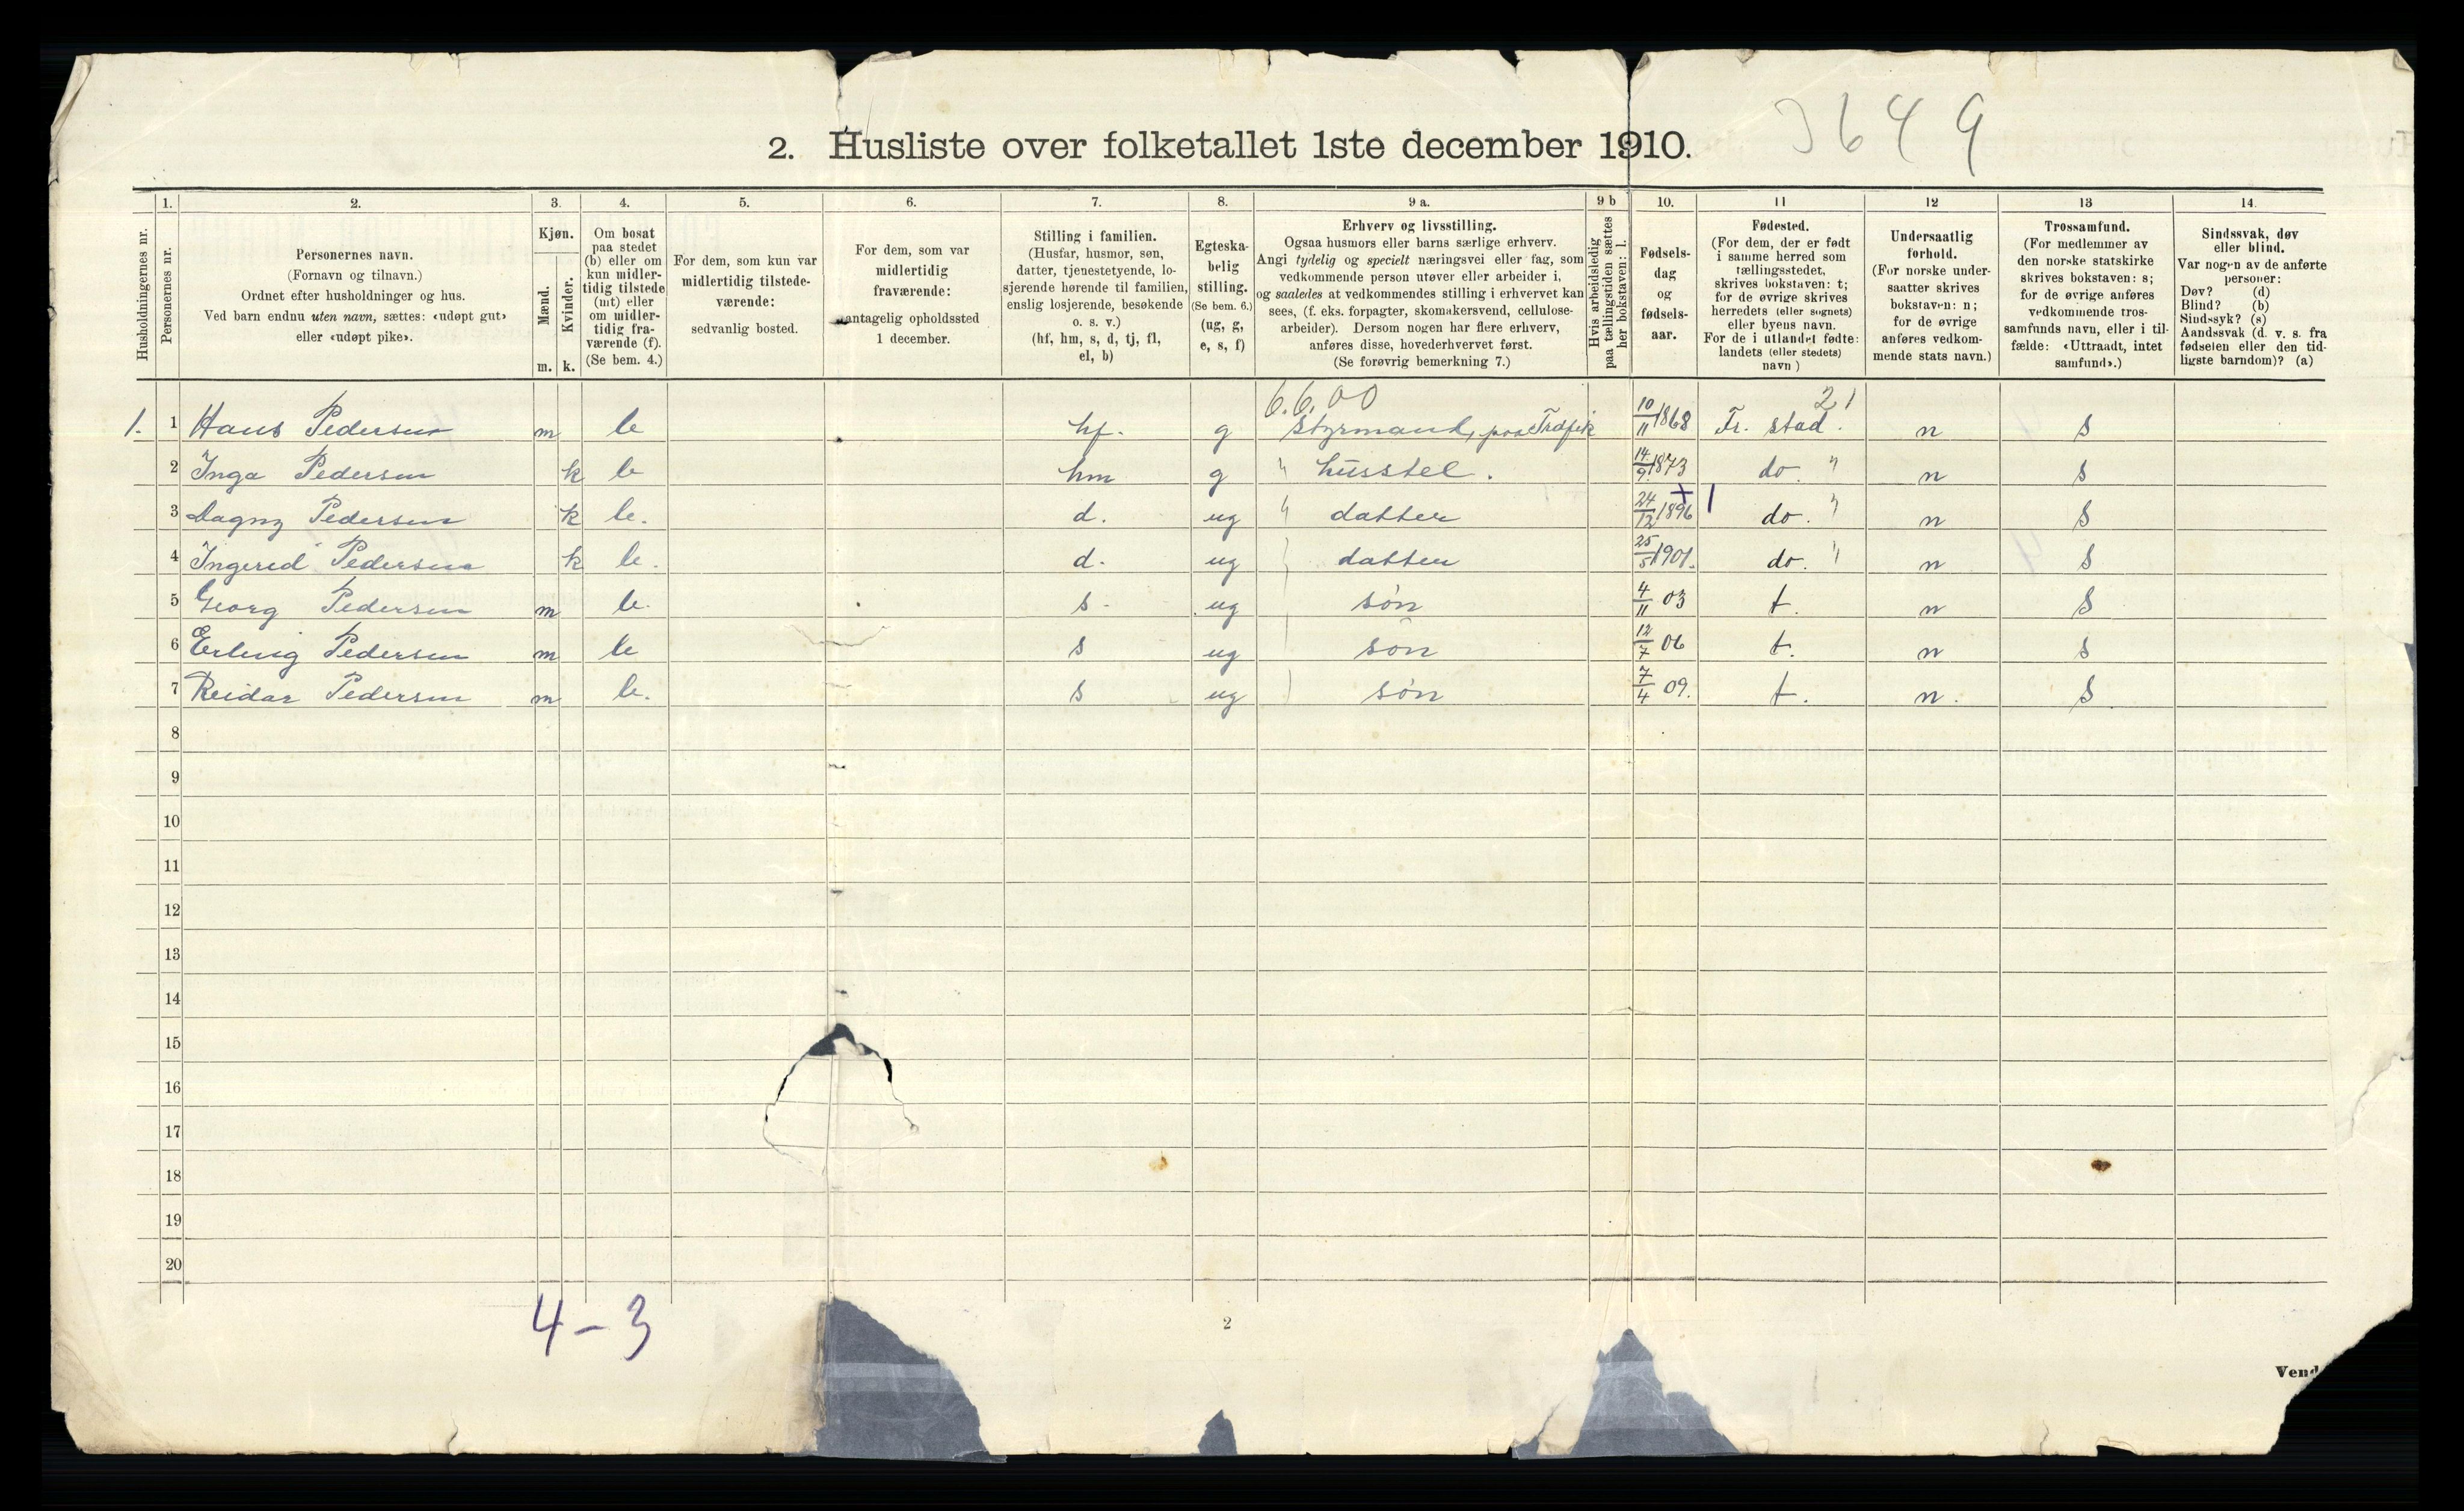 3649
2. Husliste over folketallet 1ste december 1910.
Husholdningernes nr.
1.
Personernes nr.
2.
Personernes navn.
(Fornavn og tilnavn.)
Ordnet efter husholdninger og hus.
Ved barn endnu uten navn, sættes: «udøpt gut»
eller «udøpt pike».
3.
Kjøn.
Mænd.
Kvinder.
m. k.
4.
Om bosat
paa stedet
(b) eller om
kun midler-
tidig tilstede
(mt) eller
om midler-
tidig fra-
værende (f).
(Se bem. 4.)
5.
For dem, som kun var
midlertidig tilstede-
værende:
sedvanlig bosted.
6.
For dem, som var
midlertidig
fraværende:
antagelig opholdssted
1 december.
7.
Stilling i familien.
(Husfar, husmor, søn,
datter, tjenestetyende, lo-
sjerende hørende til familien,
enslig losjerende, besøkende
o. s. v.)
(hf, hm, s, d, tj, fl,
el, b)
8.
Egteska-
belig
stilling.
(Se bem. 6.)
(ug, g,
e, s, f)
9 a.
Erhverv og livsstilling.
Ogsaa husmors eller barns særlige erhverv.
Angi tydelig og specielt næringsvei eller fag, som
vedkommende person utøver eller arbeider i,
og saaledes at vedkommendes stilling i erhvervet kan
sees, (f. eks. forpagter, skomakersvend, cellulose-
arbeider). Dersom nogen har flere erhverv,
anføres disse, hovederhvervet først.
(Se forøvrig bemerkning 7.)
9 b
Hvis arbeidsledig
paa tællingstiden sættes
her bokstaven: l.
10.
Fødsels-
dag
og
fødsels-
aar.
11
Fødested.
(For dem, der er født
i samme herred som
tællingsstedet,
skrives bokstaven: t;
for de øvrige skrives
herredets (eller sognets)
eller byens navn.
For de i utlandet fødte:
landets (eller stedets)
navn)
12
Undersaatlig
forhold.
(For norske under-
saatter skrives
bokstaven: n;
for de øvrige
anføres vedkom-
mende stats navn.)
13
Trossamfund.
(For medlemmer av
den norske statskirke
skrives bokstaven: s;
for de øvrige anføres
vedkommende tros-
samfunds navn, eller i til-
fælde: «Uttraadt, intet
samfund».)
14.
Sindssvak, døv
eller blind.
Var nogen av de anførte
personer:
Døv? (d)
Blind? (b)
Sindssyk? (s)
Aandssvak (d. v. s. fra
fødselen eller den tid-
ligste barndom)? (a)
6.6.00 21
1. 1 Hans Pedersen m b hf. g Styrmand, paa Trafik 10/11 1868 Fr. stad. n s
2 Inga Pedersen k b hm g " husstel. 14/9 1873 do. " n s
3 Dagny Pedersen k b. d. ug " datter 24/12 1896 + 1 do. " n s
4 Ingerid Pedersen k b. d. ug datter 25/5 1901. do. " n s
5 Georg Pedersen m b. s - ug søn 4/11 03 t. n s
6 Erling Pedersen m b s ug søn 12/7 06 t. n s
7 Reidar Pedersen m b. s ug søn 7/4 09. t. n. s
8
9
10
11
12
13
14
15
16
17
18
19
20
4 - 3
2
Vend